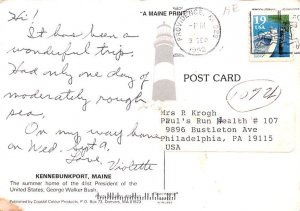 "A MAINE PRIN
Hi!
It has been a
wonderful trip.
Had only one day of
moderately rough
sea.
On my way home
on Wed. Sept 9.
Love, Violette
KENNEBUNKPORT, MAINE
The summer home of the 41st President of the
United States, George Walker Bush.
Published by Coastal Colour Products, P.O. Box
PROVIDENCE
3 SEP
1992
19
USA
POST CARD
Mrs R Krogh
Paul's Run Health # 107
9896 Bustleton Ave
Philadelphia, PA 19115
USA